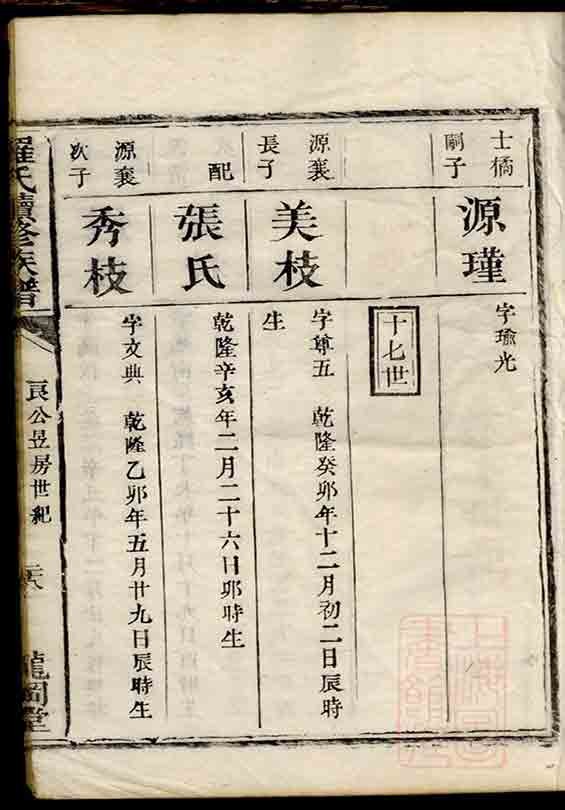 士橋
嗣子
源瑾
字瑜光
十七世
源襄
長子
美枝
字尊五 乾隆癸卯年十二月初二日辰時
生
配
張氏
乾隆辛亥年二月二十六日卯時生
源襄
次子
秀枝
字文典 乾隆乙卯年五月廿九日辰時生
羅氏續修族譜
良公昱房世紀
龍岡堂